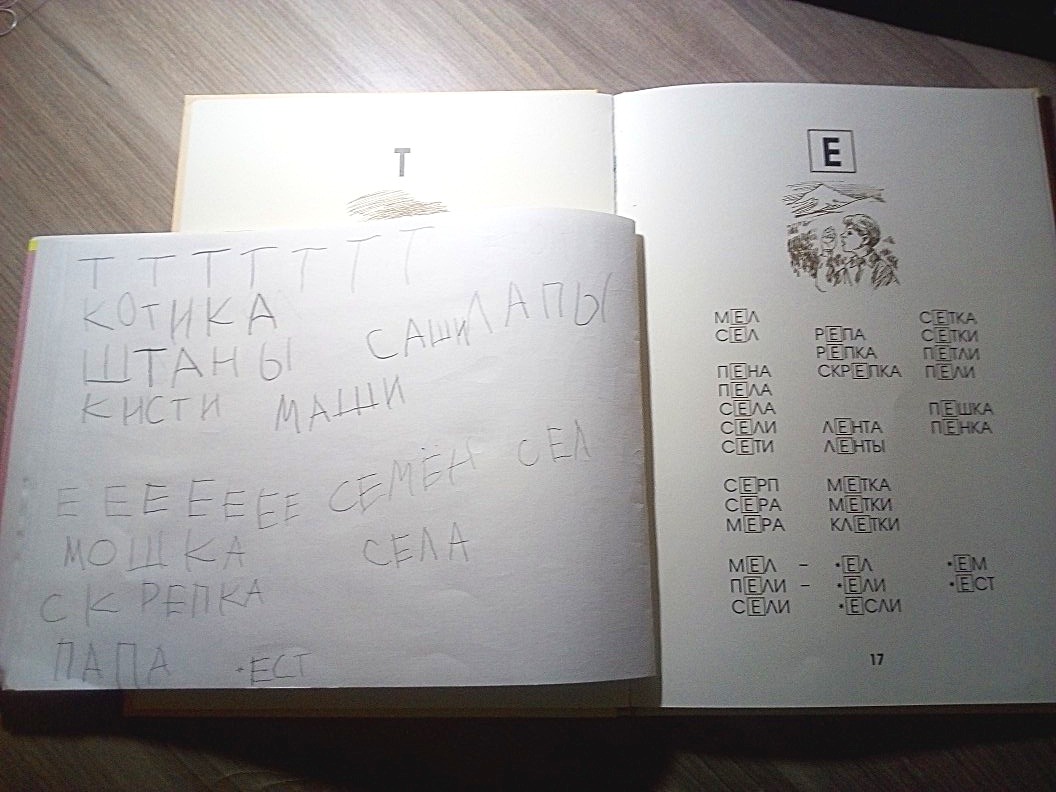 Т
Т Т Т Т Т Т Т
КОТИКА
ШТАНЫ САШИ ЛАПЫ
КИСТИ МАШИ
Е Е Е Е Е Е Е СЕМЁН СЕЛ
МОШКА СЕЛА
СКРЕПКА
ПАПА •ЕСТ
Е
МЕЛ СЕТКА
СЕЛ РЕПА СЕТКИ
РЕПКА ПЕТЛИ
ПЕНА СКРЕПКА ПЕЛИ
ПЕЛА
СЕЛА ПЕШКА
СЕЛИ ЛЕНТА ПЕНКА
СЕТИ ЛЕНТЫ
СЕРП МЕТКА
СЕРА МЕТКИ
МЕРА КЛЕТКИ
МЕЛ – •ЕЛ •ЕМ
ПЕЛИ – •ЕЛИ •ЕСТ
СЕЛИ •ЕСЛИ
17